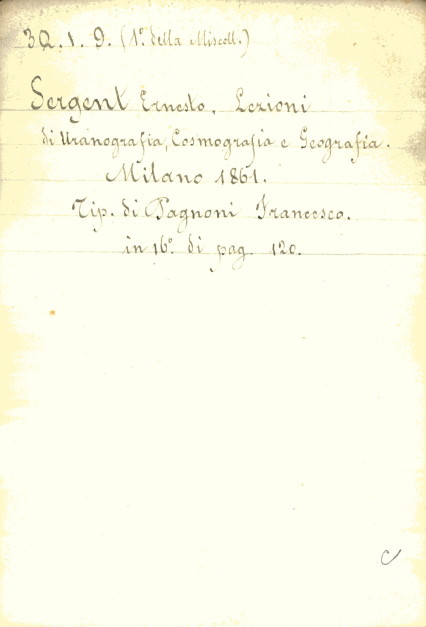 3Q.1.9. (1º della Miscell.)
Sergent Ernesto. Lezioni
di Uranografia, Cosmografia e Geografia.
Milano 1861.
Tip. di Pagnoni Francesco.
in 16º di pag. 120.
C